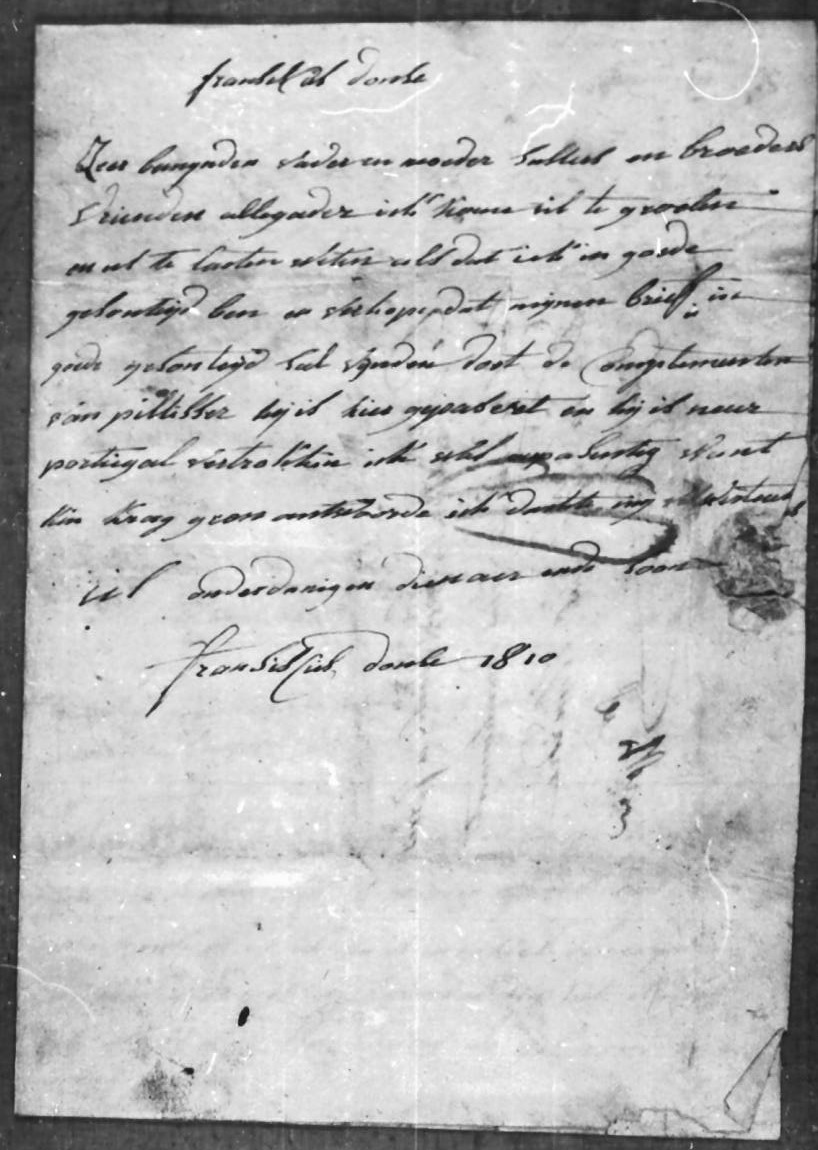 fransisCus donse
Zeer bemynden vader en moeder susters en broeders
vrienden allegader ick kome ul te groeten
en ul te laeten weten als dat ick in goede
gesonteyd ben en verhope dat mynen brief ul in
goede gesonteyd sal vynden doet de Complementen
van hy is hier gepaseret en hy is naer
portugal vertrokken ick want
kin krag geen antworde ick
ul onderdanigen dienaer ende soon
fransisCus donse 1810